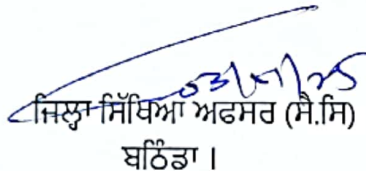 03/09/25
ਜਿਲ੍ਹਾ ਸਿੱਖਿਆ ਅਫਸਰ (ਸੈ.ਸਿ)
ਬਠਿੰਡਾ ।